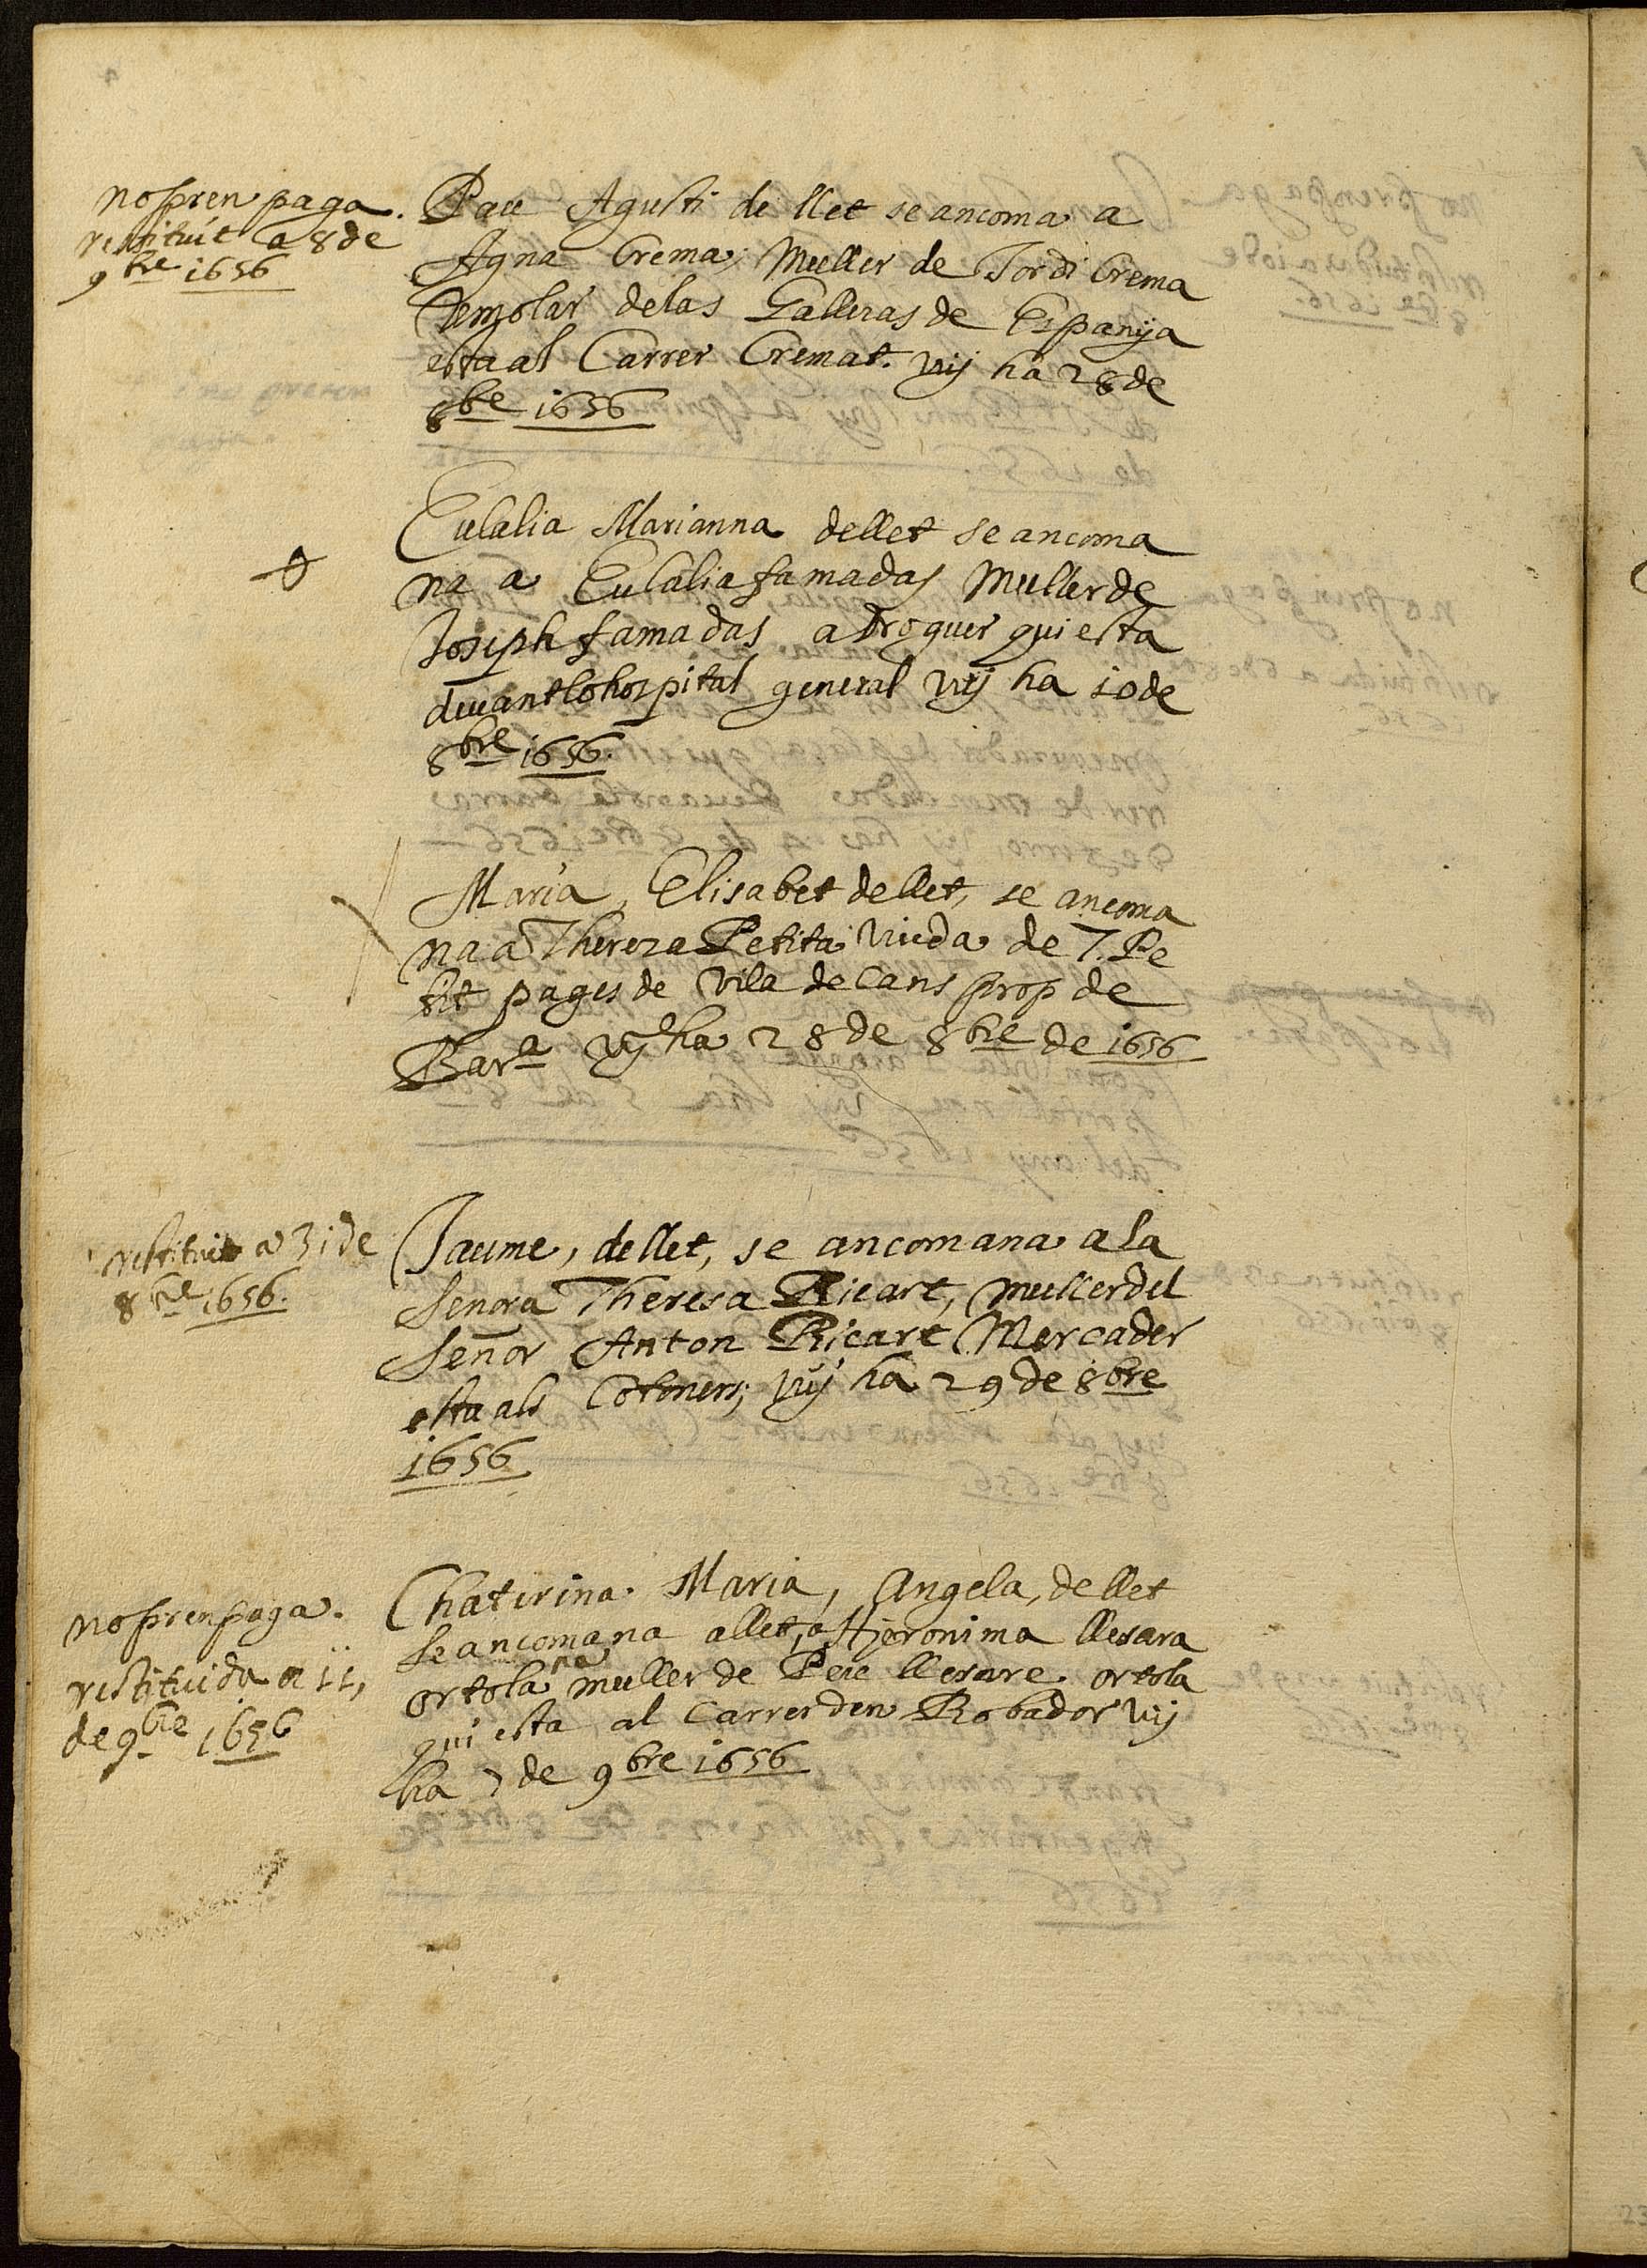 no pren paga.
restituit a 8 de
9bre 1656
Pau Agusti de llet se ancoma a
Agna Crema, Muller de Jordi Crema
Remolar de las Galleras de Espanya
esta al Carrer Cremat. vuy ha 28 de
8bre 1656
Eulalia Marianna de llet se ancoma
na a Eulalia famadas Muller de
Joseph famadas adroguer qui esta
devant lo hospital general vuy ha 10 de
8bre 1656.
Maria, Elisabet de llet, se ancoma
na a Thereza Petita viuda de J. Pe
tit pages de Vila de Cans prop de
Bara vuy ha 28 de 8bre de 1656
restituit a 31 de
8bre 1656.
Jaume, de llet, se ancomana a la
Senora Theresa Ricart, muller del
Señor Anton Ricart Mercader
esta als Cotoners; vuy ha 29 de 8bre
1656
no pren paga.
restituida a 11,
de 9bre 1656
Chaterina Maria, Angela, de llet
se ancomana a llet, a Hjeronima llesara
ortolana muller de Pere llesare ortola
qui esta al Carrer den Robador vuy
ha 7 de 9bre 1656